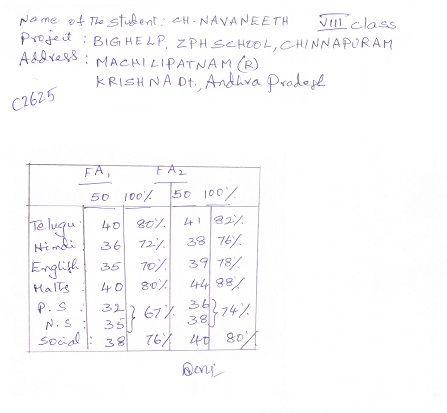 Name of The Student: CH. NAVANEETH VIII class
Project : BIGHELP, ZPH SCHOOL, CHINNAPURAM
Address : MACHILIPATNAM (R)
KRISHNA Dt., Andhra Pradesh
C2625
FA1 FA2
50 100% 50 100%
Telugu : 40 80% 41 82%
Hindi : 36 72% 38 76%
English : 35 70% 39 78%
Maths : 40 80% 44 88%
P.S : 32 67% 36 74%
N.S : 35 38
Social : 38 76% 40 80%